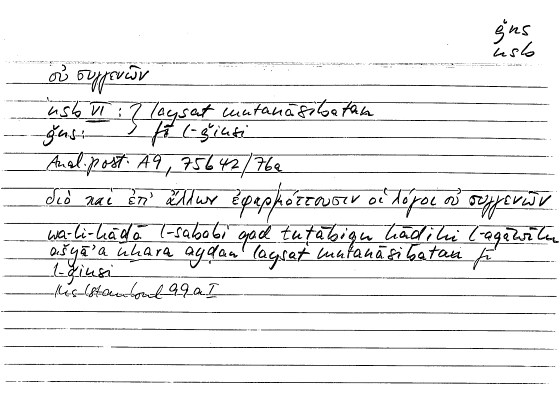 ǧns
nsb
οὐ συγγενῶν
nsb VI : } laysat mutanāsibatan
ǧns : } fī l-ǧinsi
Anal. post. A9, 75b42/76a
διὸ καὶ ἐπ' ἄλλων ἐφαρμόττουσιν οἱ λόγοι οὐ συγγενῶν
wa-li-hāḏā l-sababi qad tuṭābiqu hāḏihi l-aqāwīlu
ašyāʾa uḫara ayḍan laysat mutanāsibatan fī
l-ǧinsi
Hs Istanbul 99a I